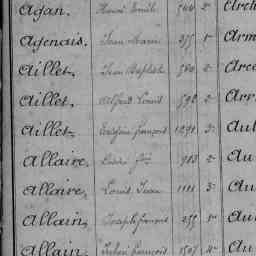 Agan. Henri Emile 2e
Agenais. Jean Marie 275 5e Arm
Aillet. Jean Baptiste 580 2e Arce
Aillet. Alfred Louis 598 2e Arr
Aillet. François 1291 3e Aub
Allaire. 983 2e Au
Allaire. Louis Jean 1111 3e Au
Allain. Joseph François 255 5e Au
Allain. François 1507 4e Au